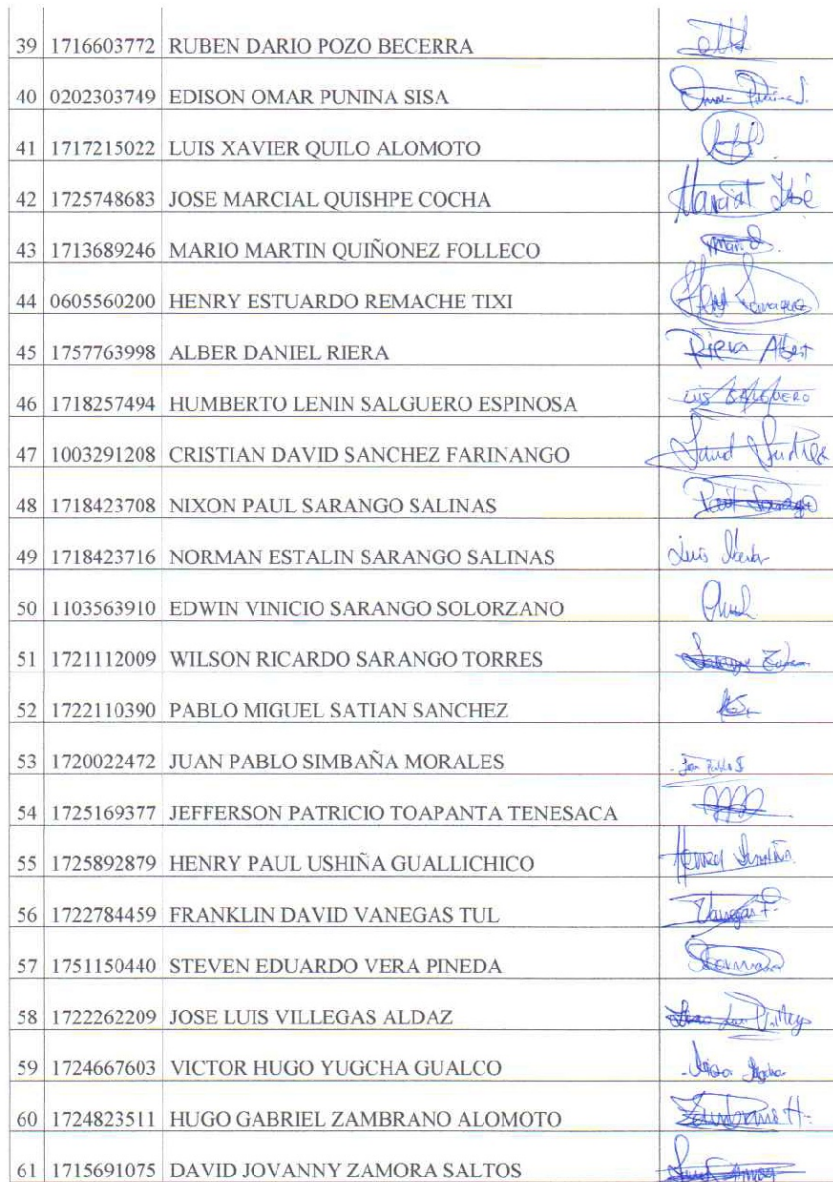 39 1716603772 RUBEN DARIO POZO BECERRA
40 0202303749 EDISON OMAR PUNINA SISA
41 1717215022 LUIS XAVIER QUILO ALOMOTO
42 1725748683 JOSE MARCIAL QUISHPE COCHA Marcial José
43 1713689246 MARIO MARTIN QUIÑONEZ FOLLECO
44 0605560200 HENRY ESTUARDO REMACHE TIXI
45 1757763998 ALBER DANIEL RIERA Riera Albert
46 1718257494 HUMBERTO LENIN SALGUERO ESPINOSA LUIS SALGUERO
47 1003291208 CRISTIAN DAVID SANCHEZ FARINANGO
48 1718423708 NIXON PAUL SARANGO SALINAS
49 1718423716 NORMAN ESTALIN SARANGO SALINAS Luis
50 1103563910 EDWIN VINICIO SARANGO SOLORZANO
51 1721112009 WILSON RICARDO SARANGO TORRES
52 1722110390 PABLO MIGUEL SATIAN SANCHEZ
53 1720022472 JUAN PABLO SIMBAÑA MORALES
54 1725169377 JEFFERSON PATRICIO TOAPANTA TENESACA
55 1725892879 HENRY PAUL USHIÑA GUALLICHICO Henry
56 1722784459 FRANKLIN DAVID VANEGAS TUL Vanegas F.
57 1751150440 STEVEN EDUARDO VERA PINEDA
58 1722262209 JOSE LUIS VILLEGAS ALDAZ
59 1724667603 VICTOR HUGO YUGCHA GUALCO
60 1724823511 HUGO GABRIEL ZAMBRANO ALOMOTO
61 1715691075 DAVID JOVANNY ZAMORA SALTOS